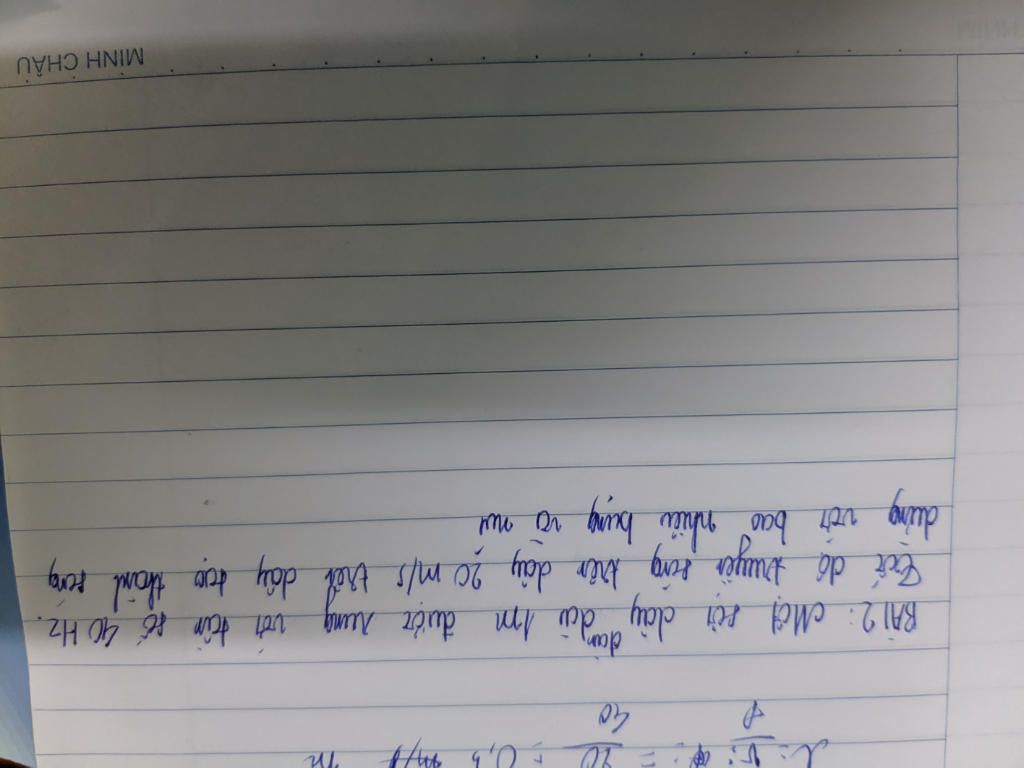 λ = v : f = 20 / 40 = 0,5 m
BÀI 2: Một sợi dây đàn dài 1m được rung với tần số 40 Hz.
Tốc độ truyền sóng trên dây 20 m/s trên dây tạo thành sóng
dừng với bao nhiêu bụng và nút
MINH CHÂU